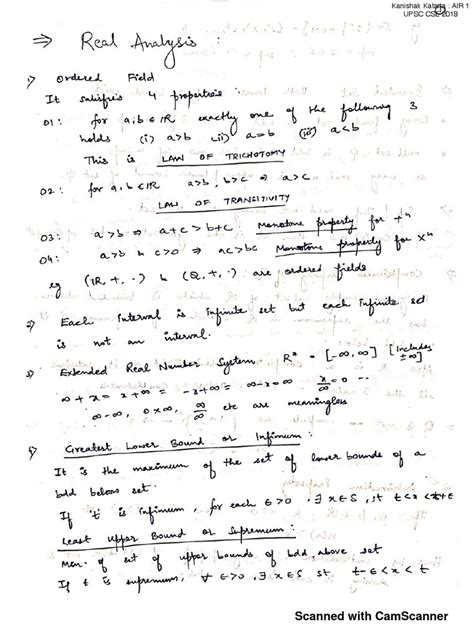 Kanishak Kataria : AIR 1
UPSC CSE 2018
⇒ Real Analysis :
1) Ordered Field
It satisfies 4 properties :
O1 : for a, b ∈ IR exactly one of the following 3
holds (i) a>b (ii) a=b (iii) a<b
This is LAW OF TRICHOTOMY
O2 : for a, b ∈ IR a>b, b>c ⇒ a>c
LAW OF TRANSITIVITY
O3 : a>b ⇒ a+c > b+c Monotone property for +ⁿ
O4 : a>b & c>0 ⇒ ac>bc Monotone property for Xⁿ
eg (IR, +, ·) & (Q, +, ·) are ordered fields
2) Each interval is infinite set but each infinite set
is not an interval.
3) Extended Real Number System R* = [-∞, ∞] [Includes ±∞]
∞ + x = x + ∞ = -x + ∞ = ∞ - x = ∞ x/∞ = 0
∞-∞, 0×∞, ∞/∞ etc are meaningless
Greatest Lower Bound or Infimum :
It is the maximum of the set of lower bounds of a
bdd below set.
If 't' is infimum, for each ε>0, ∃ x∈S, st t<x<t+ε
Least Upper Bound or Supremum :
of set of upper bounds of bdd above set
If t is supremum, ∀ ε>0, ∃ x∈S st t-ε<x<t
Scanned with CamScanner